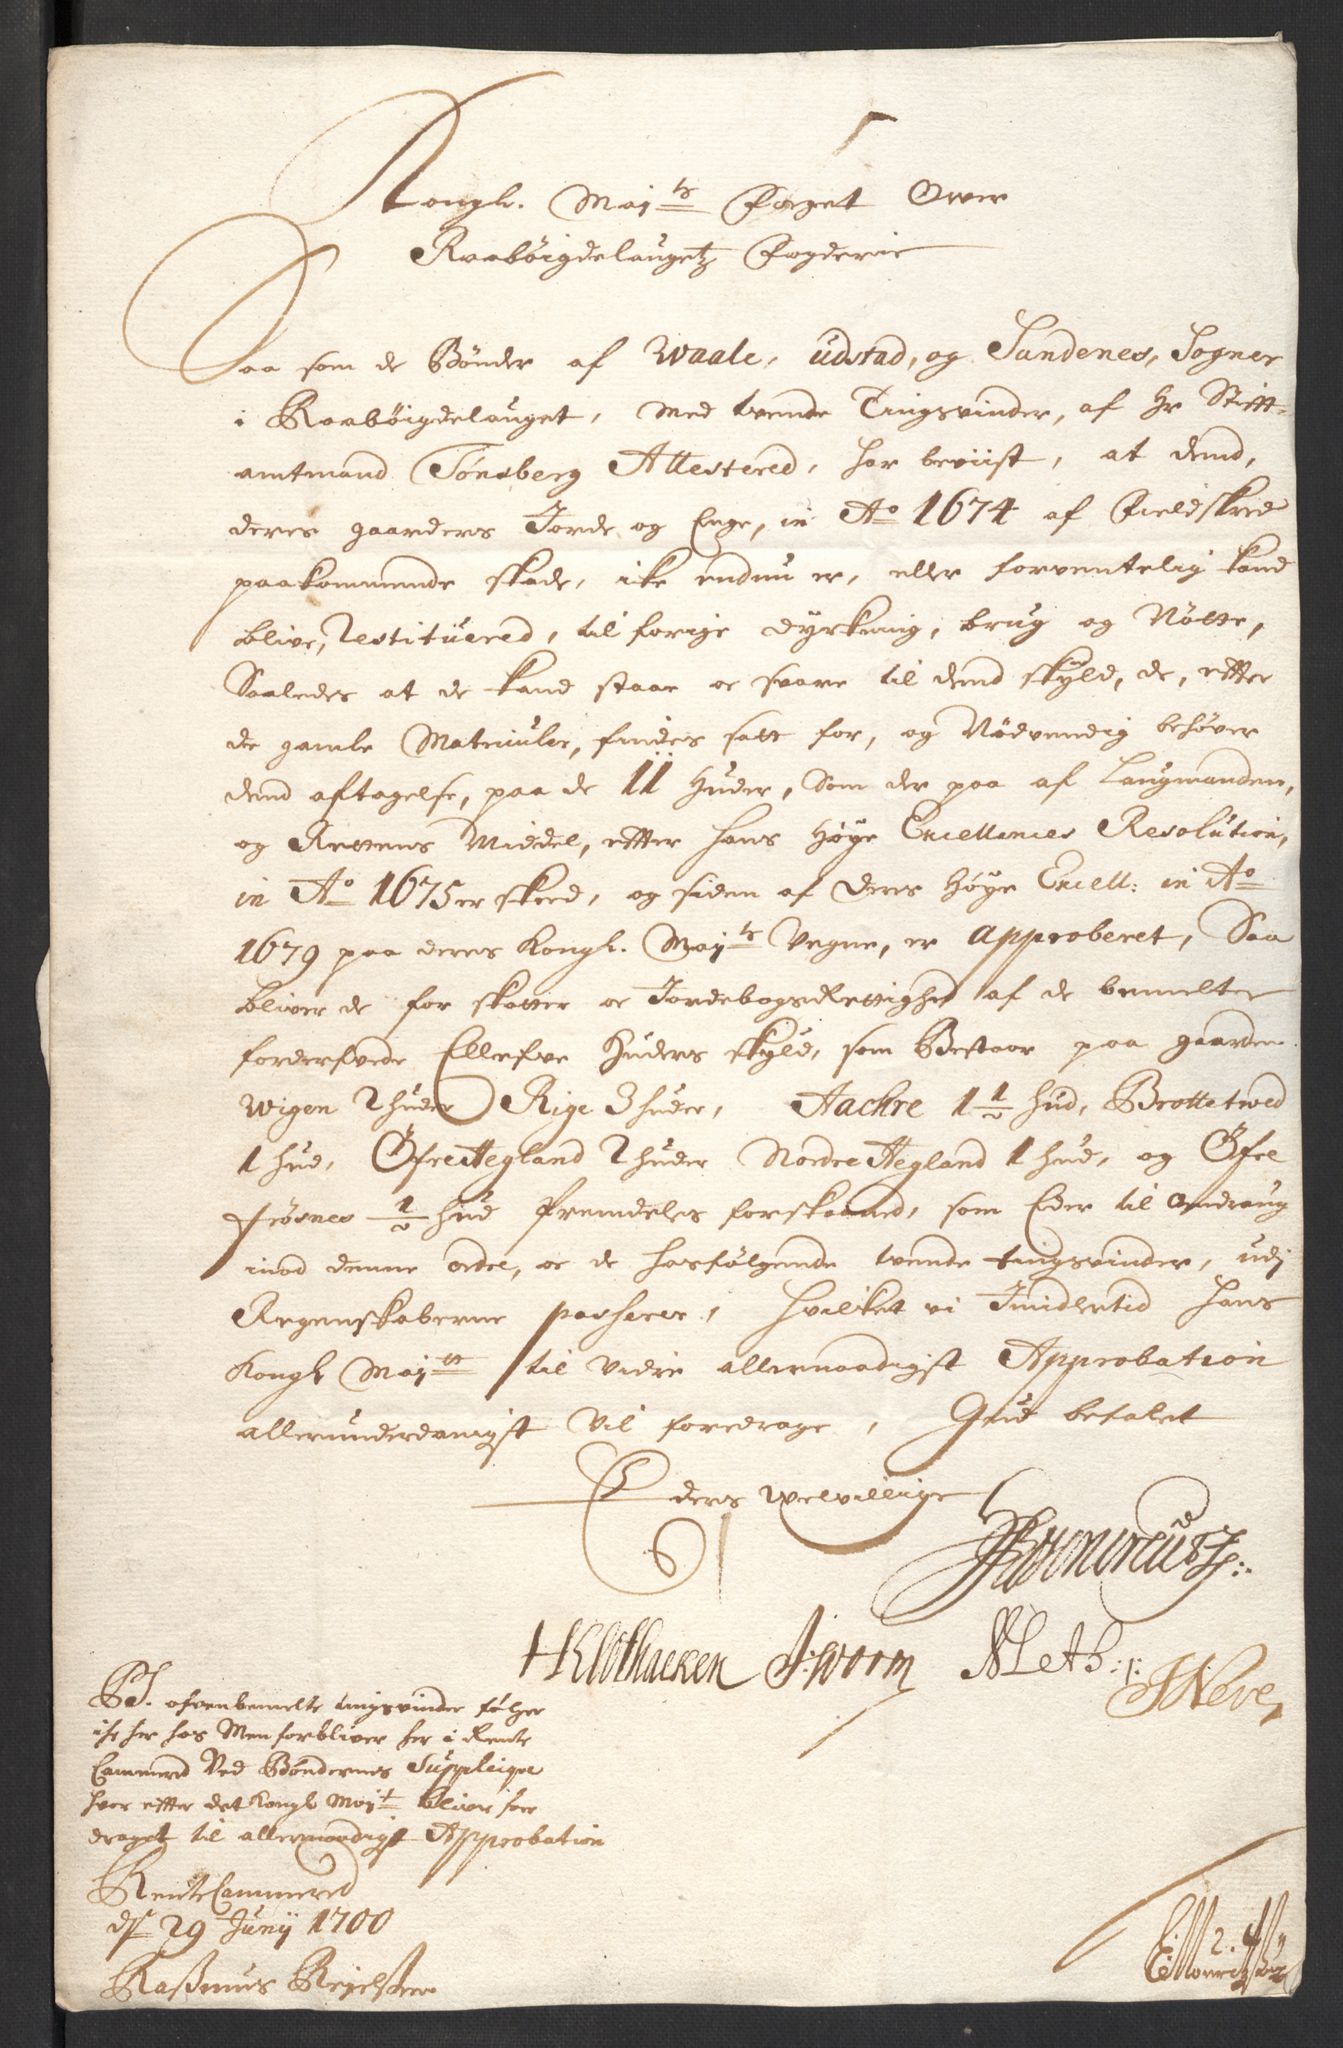 Kongl. May.ts Foget Over
Raaböigdelaugetz Fogderie
Saa som de Bönder af Waale, udstad, og Sandenes, Sogner
i Raaböigdelauget, Med tvende Tingsvinder, af Hr Stift-
amtmand Tönsberg Attestered, har beviist, at dend,
deres gaarders Jorde og Enge, in Ao 1674 af Fieldskred
paakommende skade, icke endnu er, eller forventelig kand
blive, Restituered, til forige dyrkning, brug og Nötte,
Saaledes at de kand staae oc svare til dend skyld, de, efter
de gamle Matriculer, findes satt for, og Nödvendig behöver
dend aftagelse, paa de 11 Huder, Som der paa af Laugmanden,
og Rettens Middel, efter hans Höye Excellences Resolution,
in Ao 1675 er skeed, og siden af deres Höye Excell: in Ao
1679 paa deres Kongl. May.ts Vegne, er approberet, Saa
bliver de for skatter oc JordebogsRettighed af de bemelte
forderfvede Ellefve Huders skyld, som Bestaar paa gaarden
Wigen 2 huder Rige 3 huder, Aachre 1 1/2 hud, Brottetved
1 hud, ÖfreHegland 2 huder NordreHegland 1 hud, og Öfre
Frösnes 1/2 hud fremdeles forskaaned, som Eder til
imod denne ordre, oc de hosfölgende tvende tingsvinder, udj
Regenskaberne passerer, hvilket vi Imidlertid hans
Kongl May.tt til videre allernaadigst Approbation
allerunderdanigst Vil foredrage, Gud befalet
Eders Welvillige
H Worm N Meth:
JNeve
PS. ofvenbemelte tingsvinder fölger
icke her hos Men forbliver her i Rente
Cammered Ved Böndernes Supplicqve
hvor efter det Kongl May.t bliver fore
draget til allernaadigst Approbation
RenteCammered
d. 29 Junij 1700
Rasmus